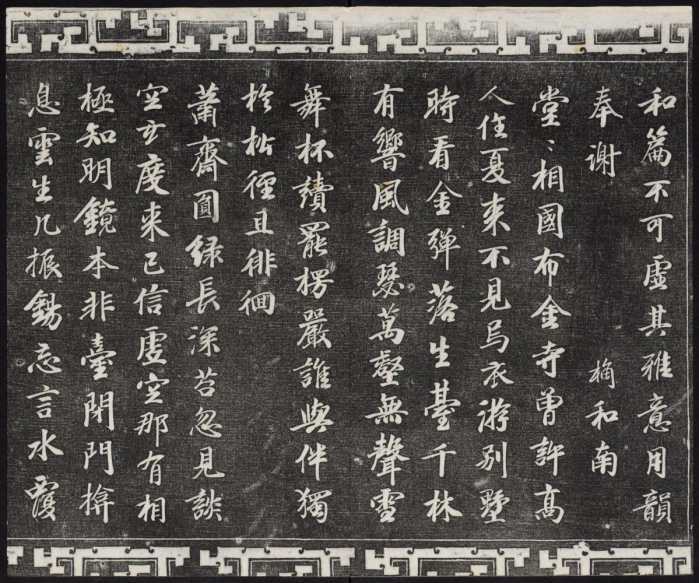 和篇不可虛其雅意用韻
奉謝 和南
堂〻相國布金寺曾許高
人住夏来不見烏衣游别墅
時看金彈落生臺千林
有響風調瑟萬壑無聲雪
舞杯續罷楞嚴誰與伴獨
於松徑且徘徊
蕭齋圓緑長深苔忽見談
空玄度来已信虛空那有相
極知明鏡本非臺閉門揜
息雲生几振錫忘言水覆